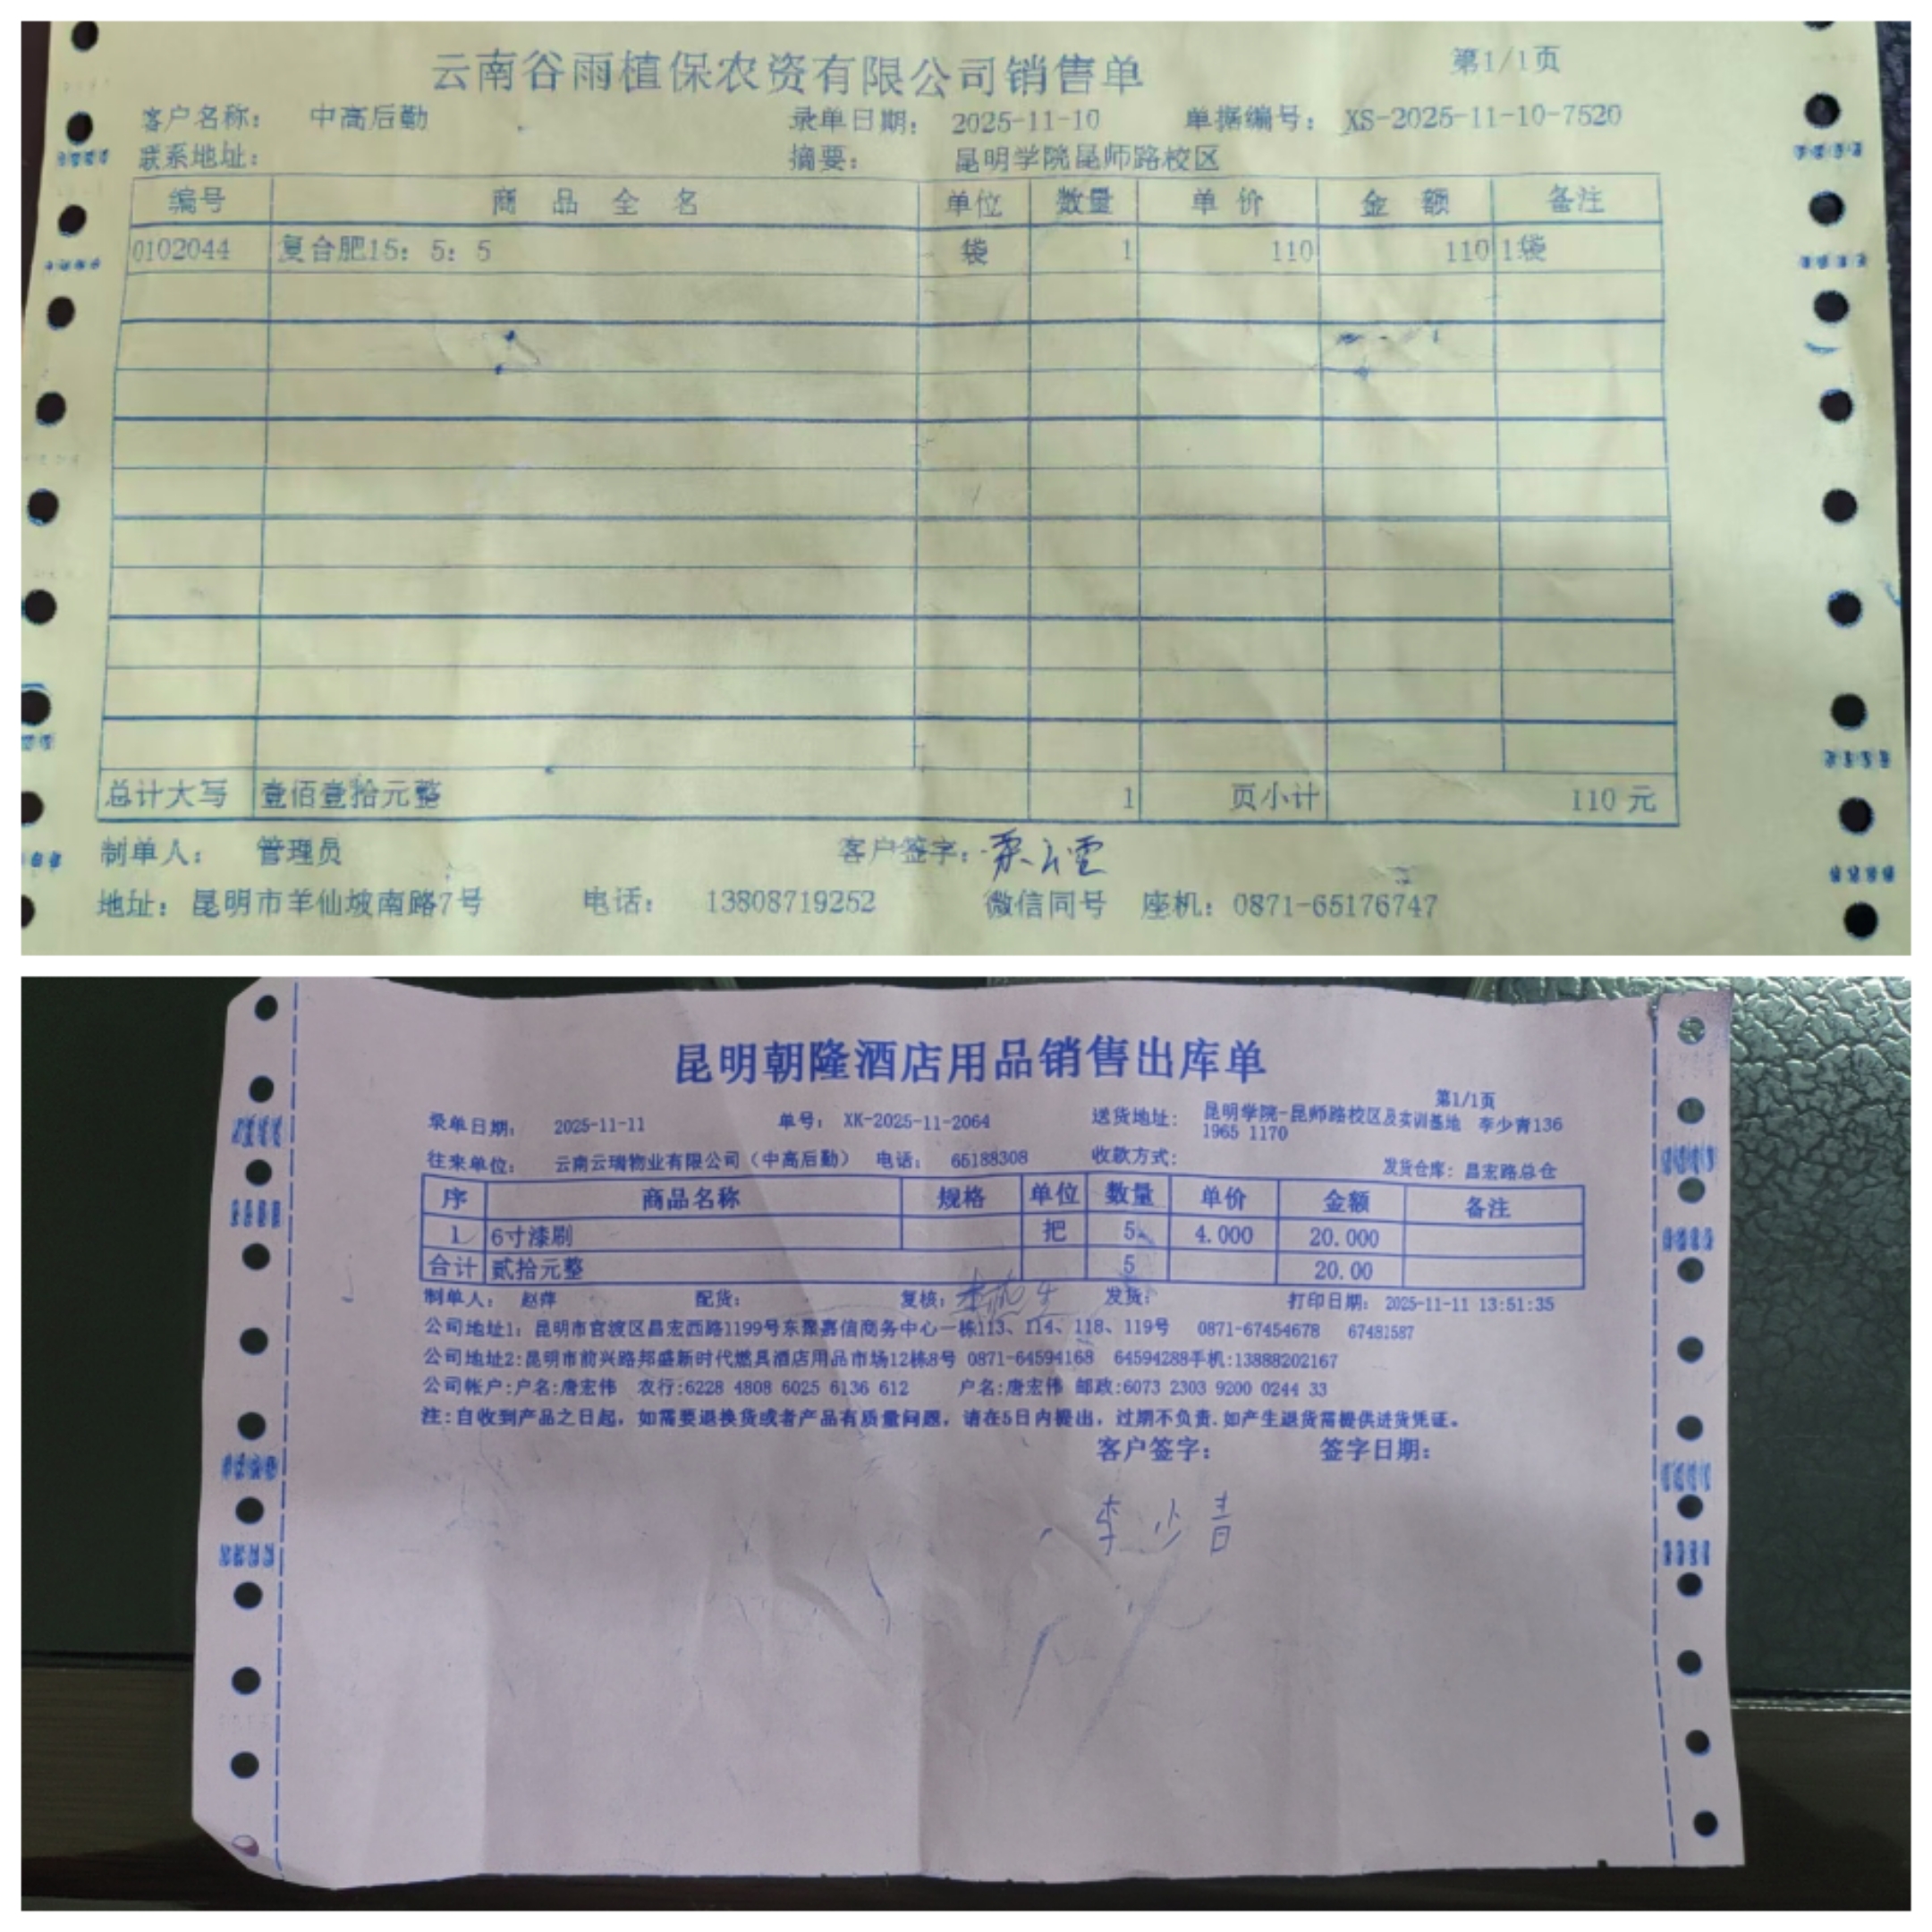 云南谷雨植保农资有限公司销售单 第1/1页
客户名称： 中高后勤 录单日期： 2025-11-10 单据编号： XS-2025-11-10-7520
联系地址： 摘要： 昆明学院昆师路校区
编号 商 品 全 名 单位 数量 单 价 金 额 备注
0102044 复合肥15：5：5 袋 1 110 110 1袋
总计大写 壹佰壹拾元整 1 页小计 110 元
制单人： 管理员 客户签字：
地址：昆明市羊仙坡南路7号 电话： 13808719252 微信同号 座机：0871-65176747
昆明朝隆酒店用品销售出库单
第1/1页
录单日期： 2025-11-11 单号： XK-2025-11-2064 送货地址： 昆明学院-昆师路校区及实训基地 李少青136
1965 1170
往来单位： 云南云瑞物业有限公司（中高后勤） 电话： 65188308 收款方式： 发货仓库：昌宏路总仓
序 商品名称 规格 单位 数量 单价 金额 备注
1 6寸漆刷 把 5 4.000 20.000
合计 贰拾元整 5 20.00
制单人： 赵萍 配货： 复核： 发货： 打印日期： 2025-11-11 13:51:35
公司地址1：昆明市官渡区昌宏西路1199号东聚嘉信商务中心一栋113、114、118、119号 0871-67454678 67481587
公司地址2:昆明市前兴路邦盛新时代燃具酒店用品市场12栋8号 0871-64594168 64594288手机:13888202167
公司帐户:户名:唐宏伟 农行:6228 4808 6025 6136 612 户名:唐宏伟 邮政:6073 2303 9200 0244 33
注:自收到产品之日起，如需要退换货或者产品有质量问题，请在5日内提出，过期不负责.如产生退货需提供进货凭证。
客户签字： 签字日期：
李少青